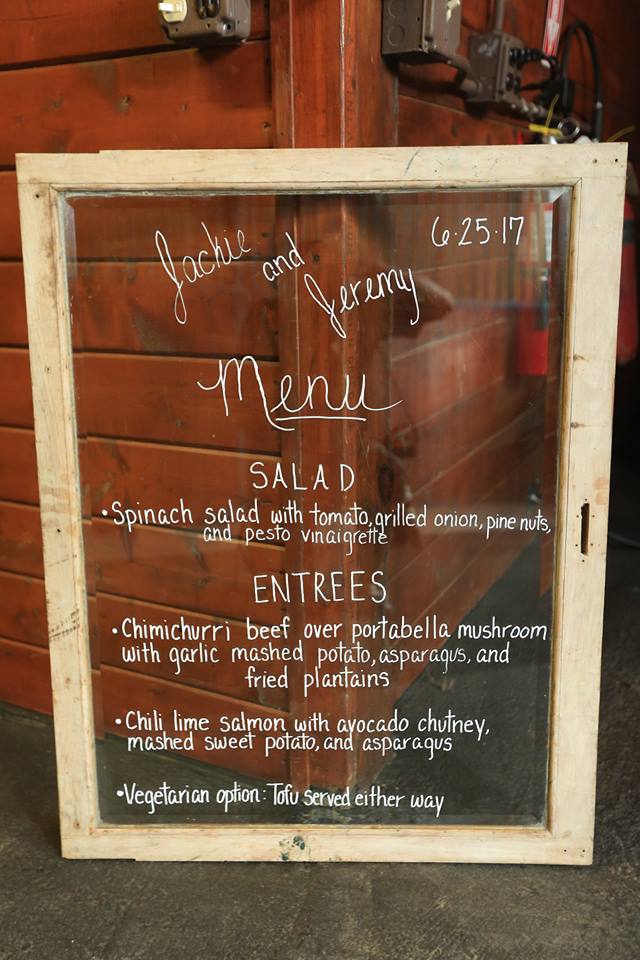 Jackie and Jeremy
6·25·17
Menu
SALAD
•Spinach salad with tomato, grilled onion, pine nuts,
and pesto vinaigrette
ENTREES
•Chimichurri beef over portabella mushroom
with garlic mashed potato, asparagus, and
fried plantains
•Chili lime salmon with avocado chutney,
mashed sweet potato, and asparagus
•Vegetarian option: Tofu served either way